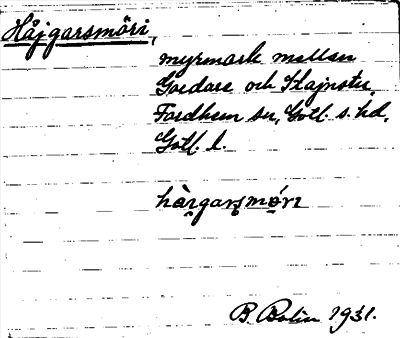 Håjgarsmöri,
myrmark mellan
Gordare och Hajnstu,
Fardhem sn, Gotl. s. hd,
Gotl. l.
hàı̯garsmǿrı
B. Bolin 1931.